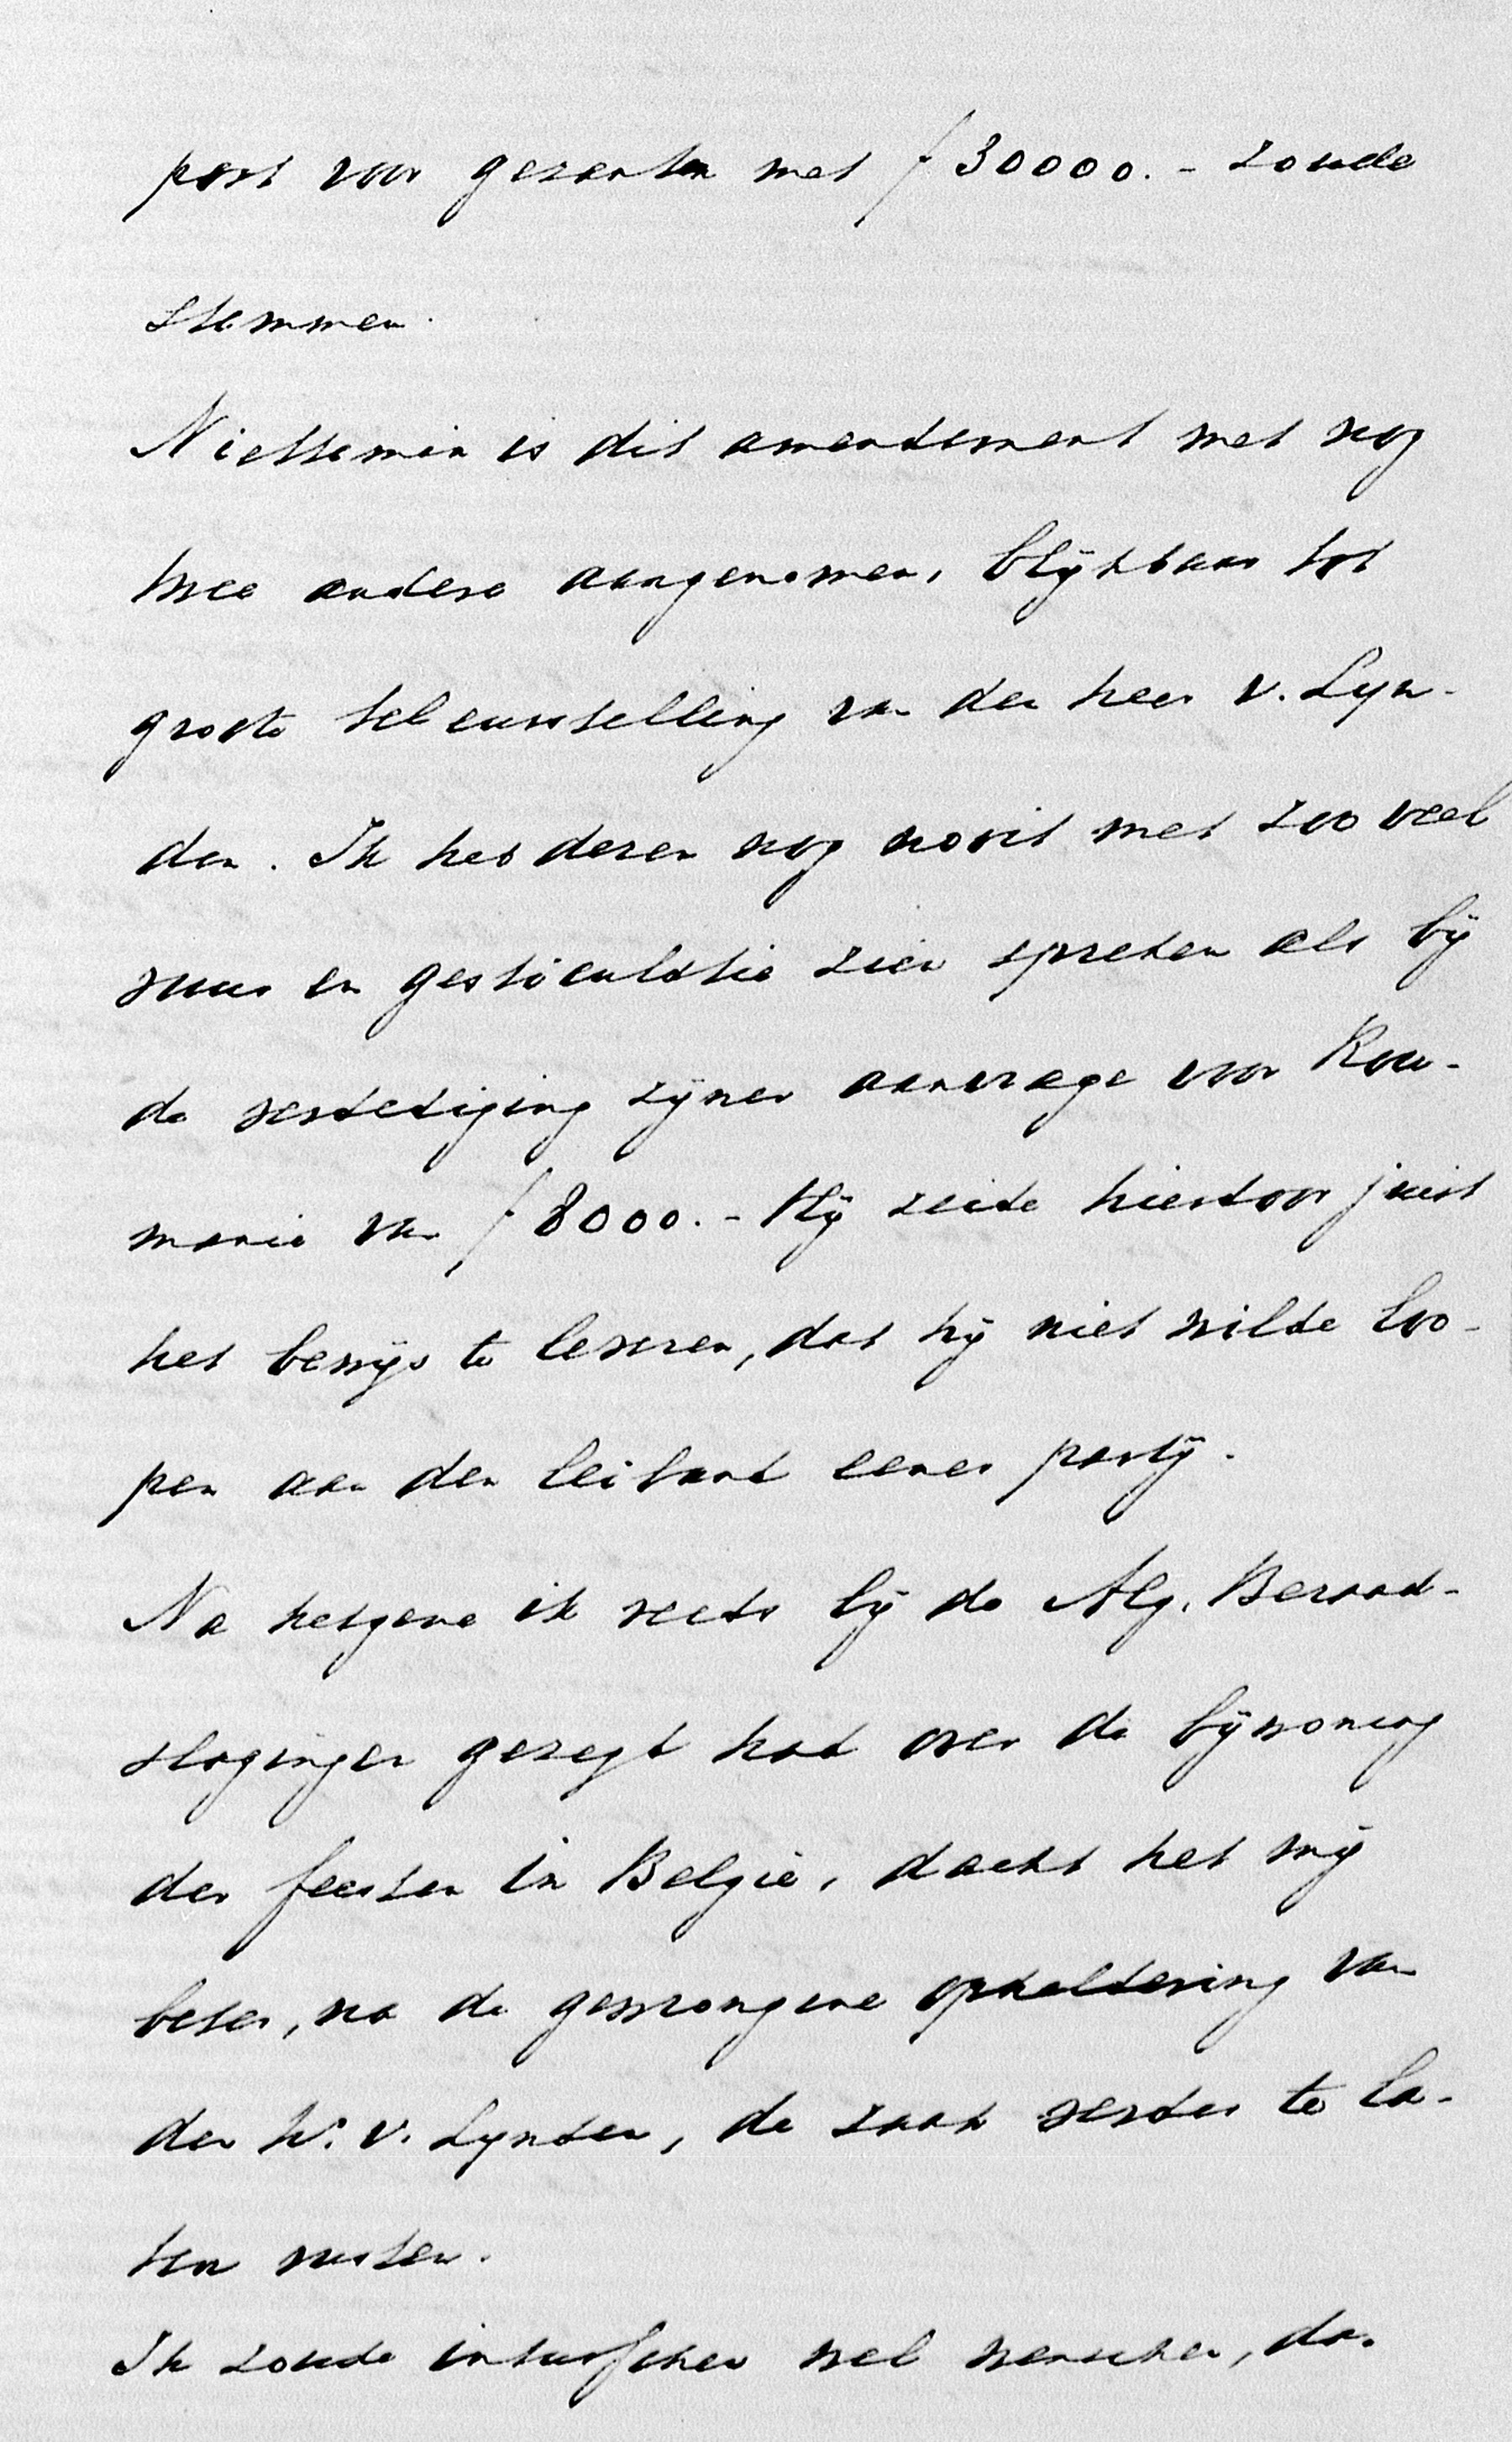 post voor gezanten met f 30000.- zoude
stemmen.
Niettemin is dit amendement met nog
twee andere aangenomen, blijkbaar tot
groote teleurstelling van den heer v. Lyn-
den. Ik heb dezen nog nooit met zoo veel
vuur en gesticulatie zien spreken als bij
de verdediging zijner aanvrage voor Rou-
manie van f 8000.- Hij zeide hierdoor juist
het bewijs te leveren, dat hij niet wilde loo-
pen aan den leiband eener partij.
Na hetgene ik reeds bij de Alg. Beraad-
slagingen gezegd had over de bijwoning
der feesten in België, dacht het mij
beter, na de gewrongene opheldering van
den H. v. Lynden, de zaak verder te la-
ten rusten.
Ik zoude intusschen wel wenschen, da.